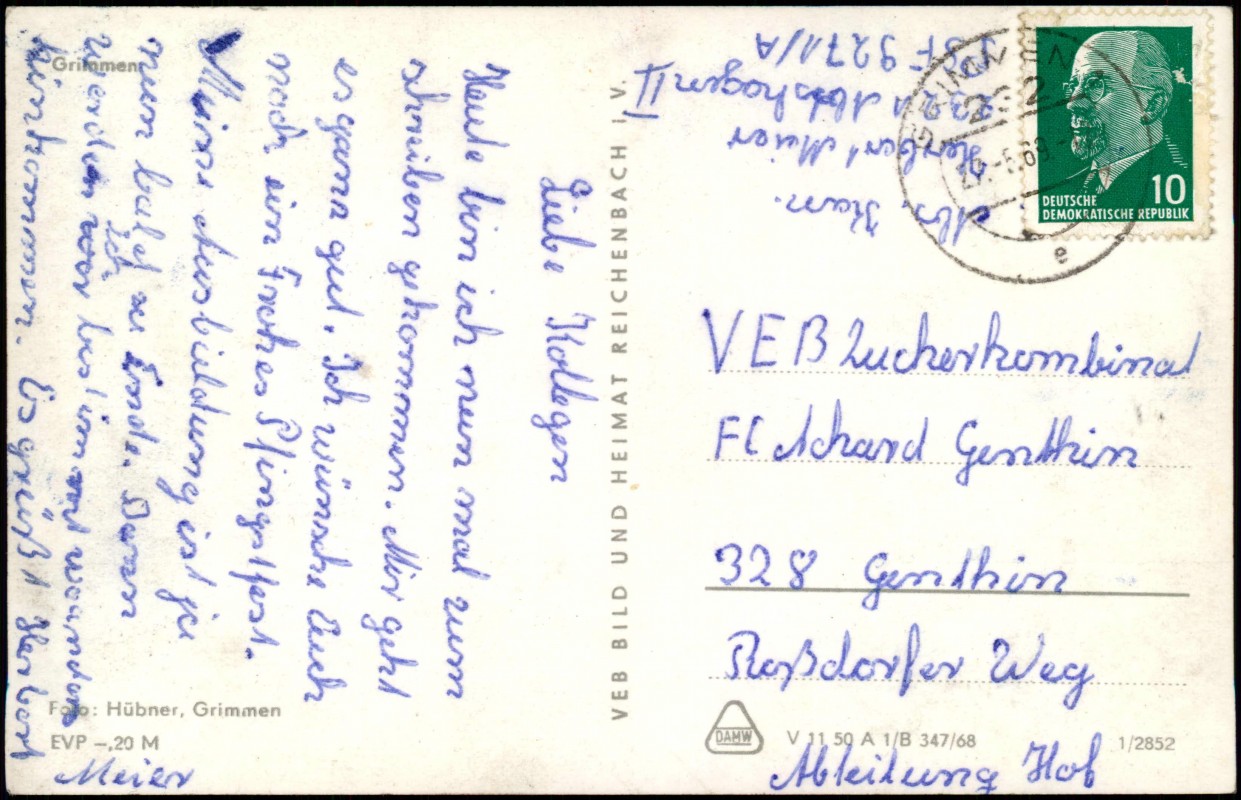 Grimmen
Liebe Kollegen
Heute bin ich nun mal zum
schreiben gekommen. Mir geht
es ganz gut. Ich wünsche Euch
noch ein Frohes Pfingstfest.
Meine Ausbildung ist ja
nun bald zu Ende. Dann
werden wir bestimmt woanders
Ich
hinkommen. Es grüßt Herbert
Meier
Foto: Hübner, Grimmen
EVP –,20 M
VEB BILD UND HEIMAT REICHENBACH I. V.
Abs. Kan.
Herbert Meier
2321 Abtshagen II
PSF 9271/A
GRIMMEN
232
e
10
DEUTSCHE
DEMOKRATISCHE REPUBLIK
VEB Zuckerkombinat
FC Achard Genthin
328 Genthin
Roßdorfer Weg
Abteilung Hof
DAMW
V 11 50 A 1/B 347/68
1/2852